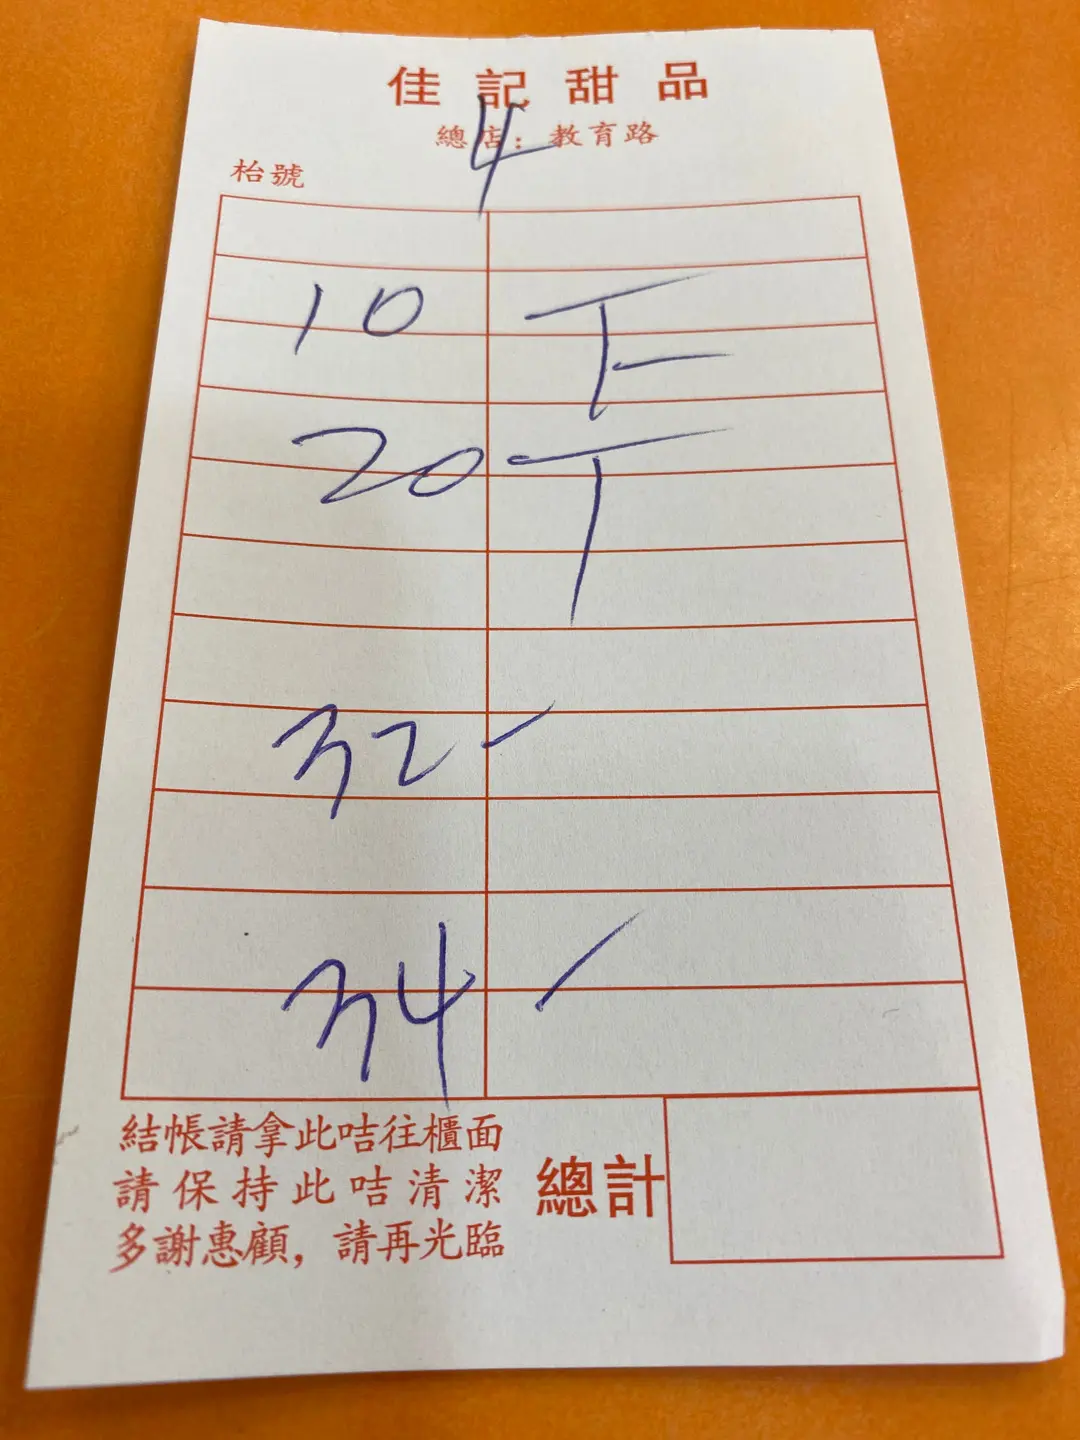 佳記甜品
總店：教育路
枱號 4
10 下
20 丅
32
34
結帳請拿此咭往櫃面
請保持此咭清潔
多謝惠顧，請再光臨
總計